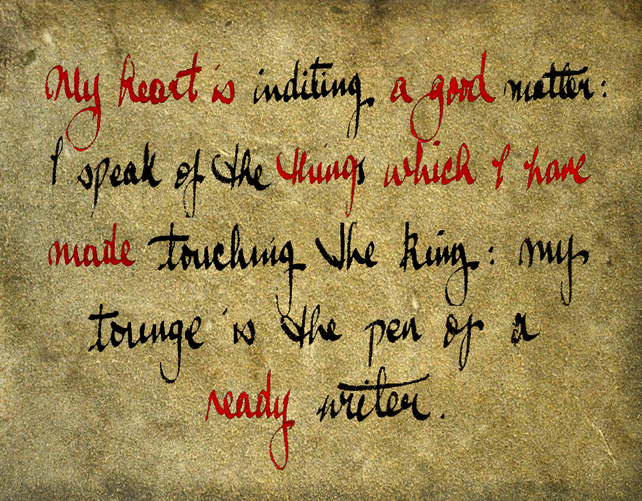 My heart is inditing a good matter:
I speak of the things which I have
made touching the king: my
tounge is the pen of a
ready writer.